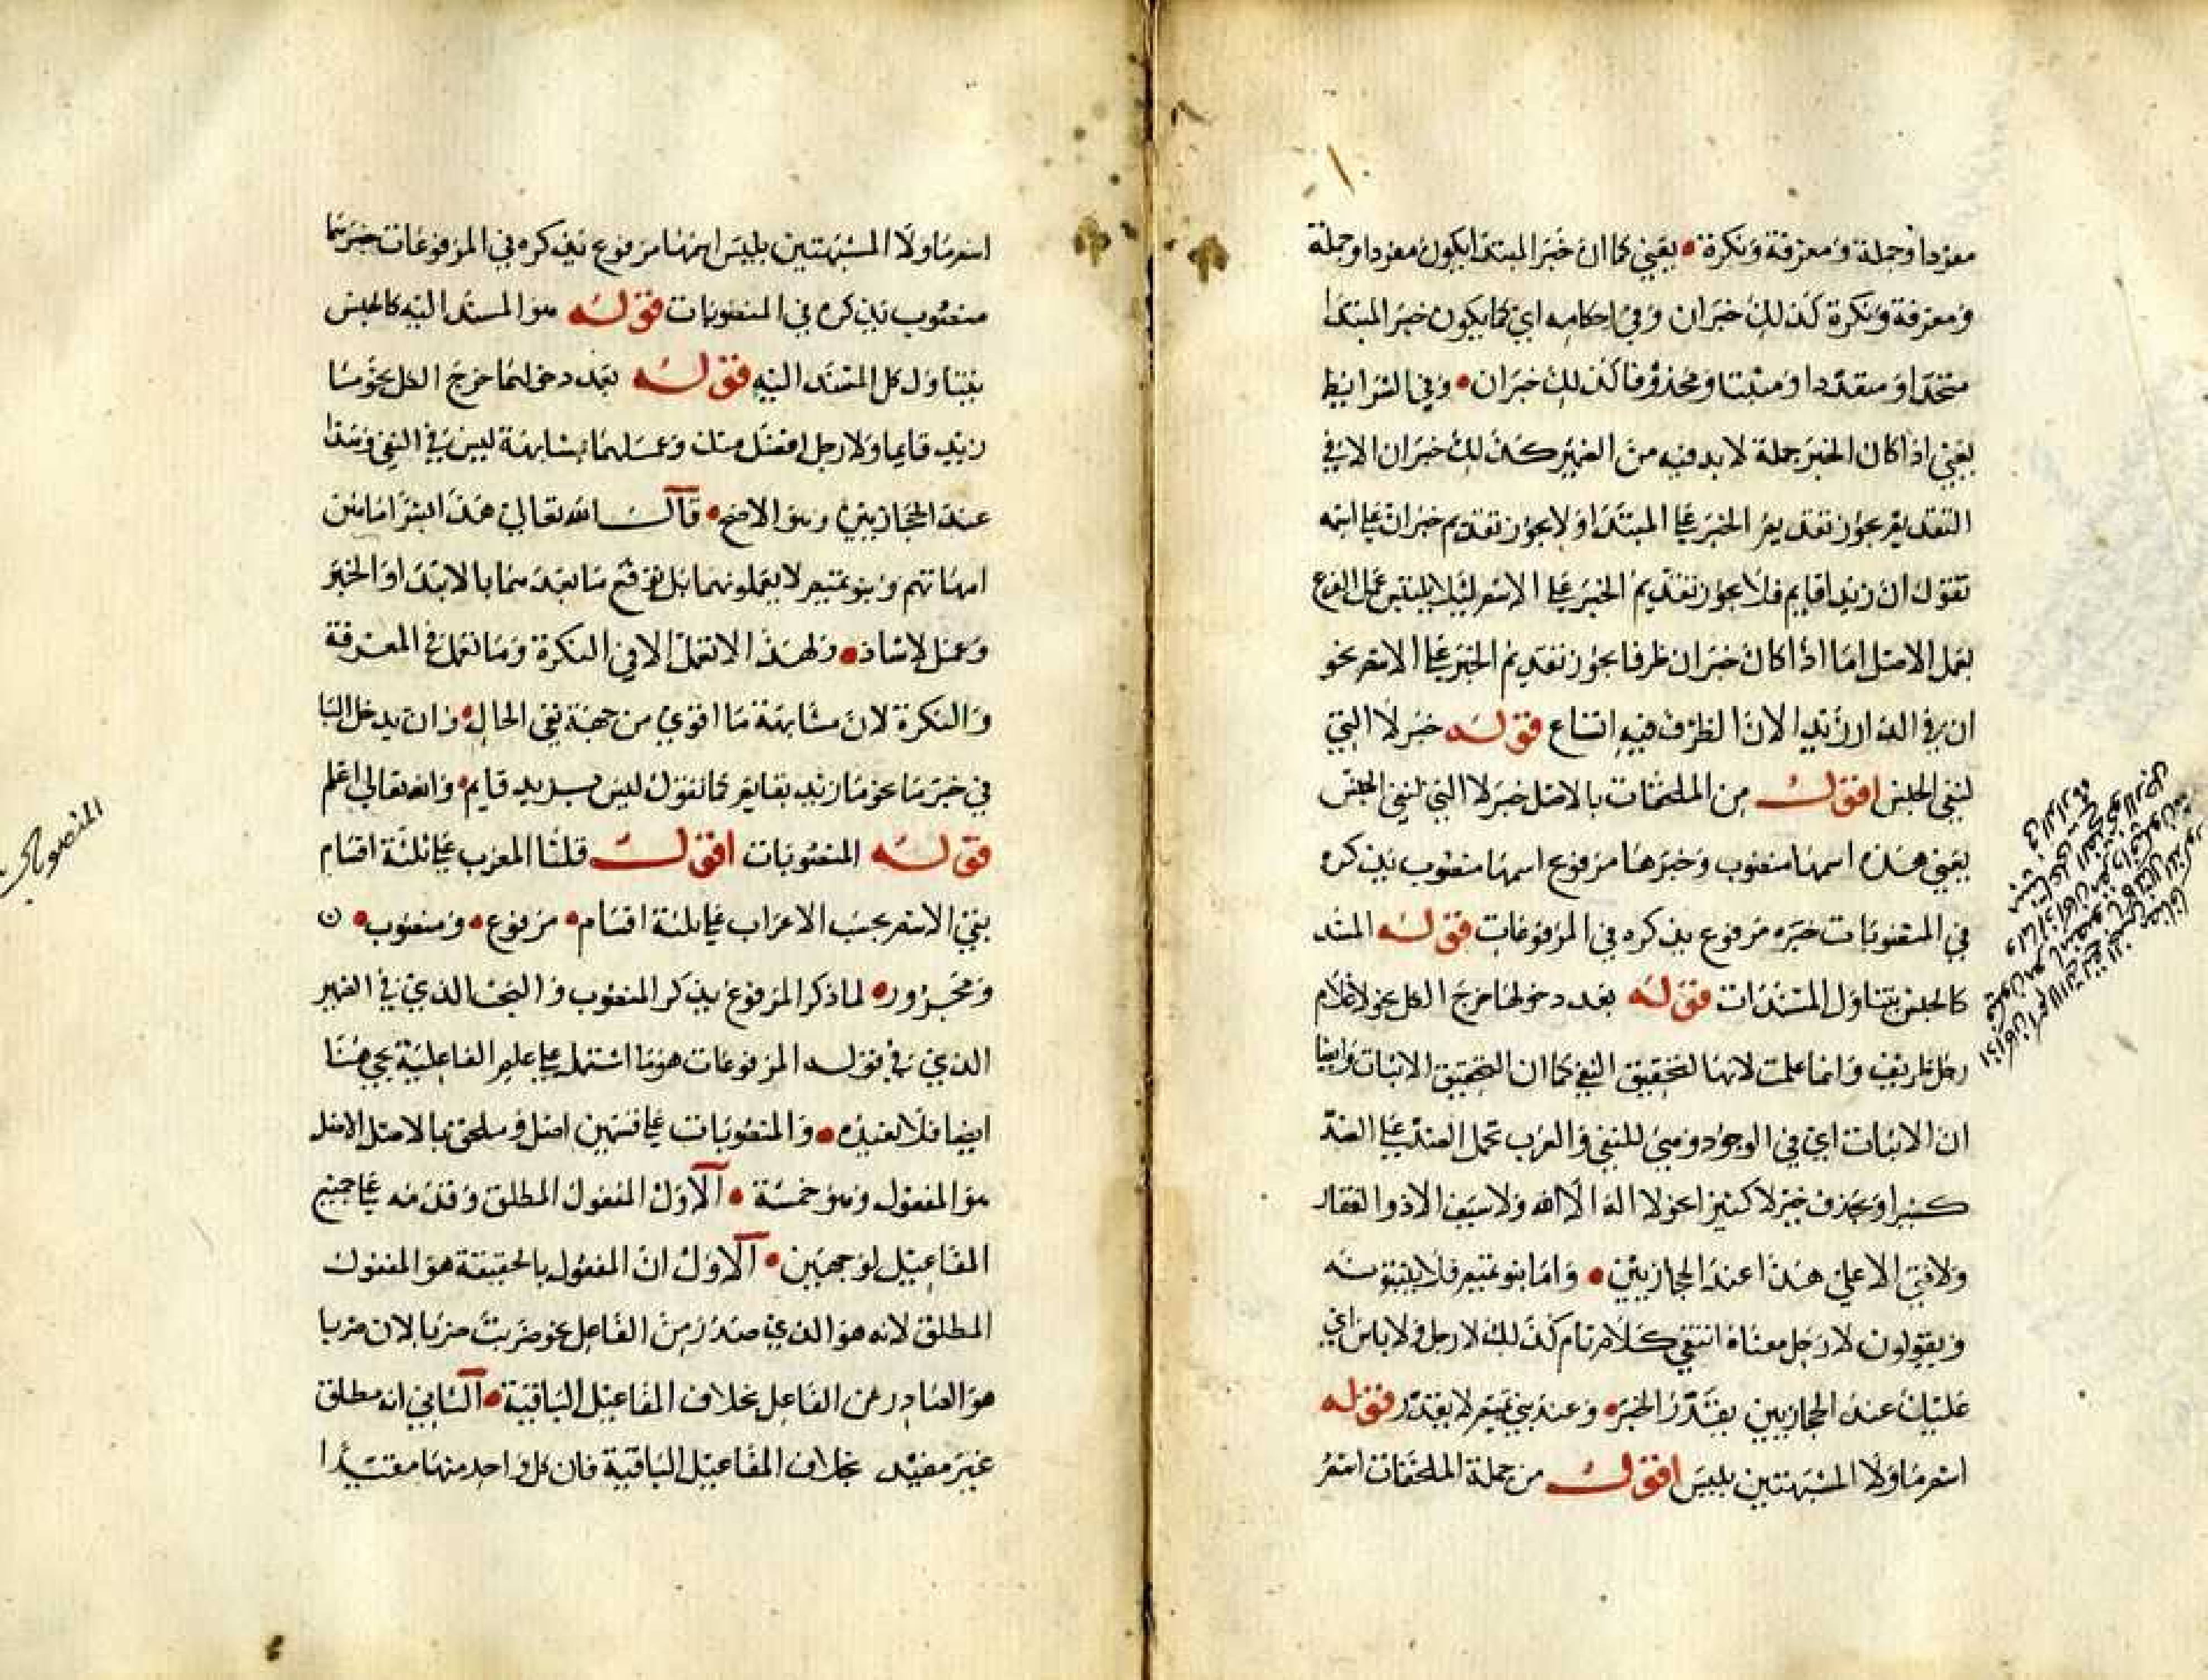 مفردا وجملة ومعرفة ونكرة • يعني كما ان خبر المبتدا يكون مفردا وجملة
ومعرفة ونكرة كذلك خبر ان وفي احكامه اي كما يكون خبر المبتدا
متحدا ومتعددا ومثبتا ومحذوفا كذلك خبر ان • وفي الشرايط
يعني اذا كان الخبر جملة لا بد فيه من الضمير كذلك خبر ان الا في
التقديم يجوز تقديم الخبر علي المبتدا ولا يجوز تقديم خبر ان علي اسمه
تقول ان زيدا قايم فلا يجوز تقديم الخبر علي الاسم ليلا يلتبس عمل الفرع
بعمل الاصل اما اذا كان خبر ان ظرفا يجوز تقديم الخبر علي الاسم نحو
ان في الدار زيدا لان الظرف فيه اتساع قوله خبر لا التي
لنفي الجنس اقول من الملحقات بالاصل خبر لا التي لنفي الجنس
يعني هذه اسمها منصوب وخبرها مرفوع اسمها منصوب يذكره
في المنصوبات خبره مرفوع يذكره في المرفوعات قوله المسند
كالجنس يتناول المسندات قوله بعد دخولها خرج الكل نحو لا غلام
رجل ظريف وانما علمت لانها لتحقيق النفي كما ان لتحقيق الاثبات وايضا
ان الاثبات اي في الوجود وهي للنفي والعرب تحمل الضد علي الضد
كثيرا ويحذف خبر لا كثيرا نحو لا اله الا الله ولا سيف الا ذو الفقار
ولا فتي الا علي هذا عند الحجازيين • واما بنو تميم فلا يثبتونه
ويقولون لا رجل معناه انتفي كلام تام كذلك لا رجل ولا باس اي
عليك عند الحجازيين يقدر الخبر • وعند بني تميم لا يقدر قوله
اسم ما ولا المشبهتين بليس اقول من جملة الملحقات اسم
اسم ما ولا المشبهتين بليس اسمها مرفوع يذكره في المرفوعات خبرهما
منصوب يذكره في المنصوبات قوله هو المسند اليه كالجنس
يتناول كل المسند اليه قوله بعد دخولهما خرج الكل نحو ما
زيد قايما ولا رجل افضل منك وعملهما بمشابهة ليس في النفي وهذا
عند الحجازيين وهو الافصح • قال الله تعالي هذا بشرا ما هن
امهاتهم وبنو تميم لا يعملونهما بل يرفع ما بعدهما بالابتدا والخبر
وعمل لا شاذ • ولهذا لا تعمل الا في النكرة وما تعمل في المعرفة
والنكرة لان مشابهة ما اقوي من جهة نفي الحال • وان يدخل البا
في خبر ما نحو ما زيد بقايم كما تقول ليس زيد بقايم • والله تعالي اعلم
قوله المنصوبات اقول قلنا المعرب علي ثلثة اقسام
يعني الاسم بحسب الاعراب علي ثلثة اقسام • مرفوع • ومنصوب •
ومجرور • لما ذكر المرفوع يذكر المنصوب والبحث الذي في الضمير
الذي في قوله المرفوعات هو ما اشتمل علي علم الفاعلية يجي هنا
ايضا فلا نعيده • والمنصوبات علي قسمين اصل وملحق بالاصل الاصل
هو المفعول وهو خمسة • الاول المفعول المطلق وقدمه علي جميع
المفاعيل لوجهين • الاول ان المفعول بالحقيقة هو المفعول
المطلق لانه هو الذي صدر من الفاعل نحو ضربت ضربا لان ضربا
هو الصادر عن الفاعل بخلاف المفاعيل الباقية • الثاني انه مطلق
غير مقيد بخلاف المفاعيل الباقية فان كل واحد منها مقيدا
المنصوبات